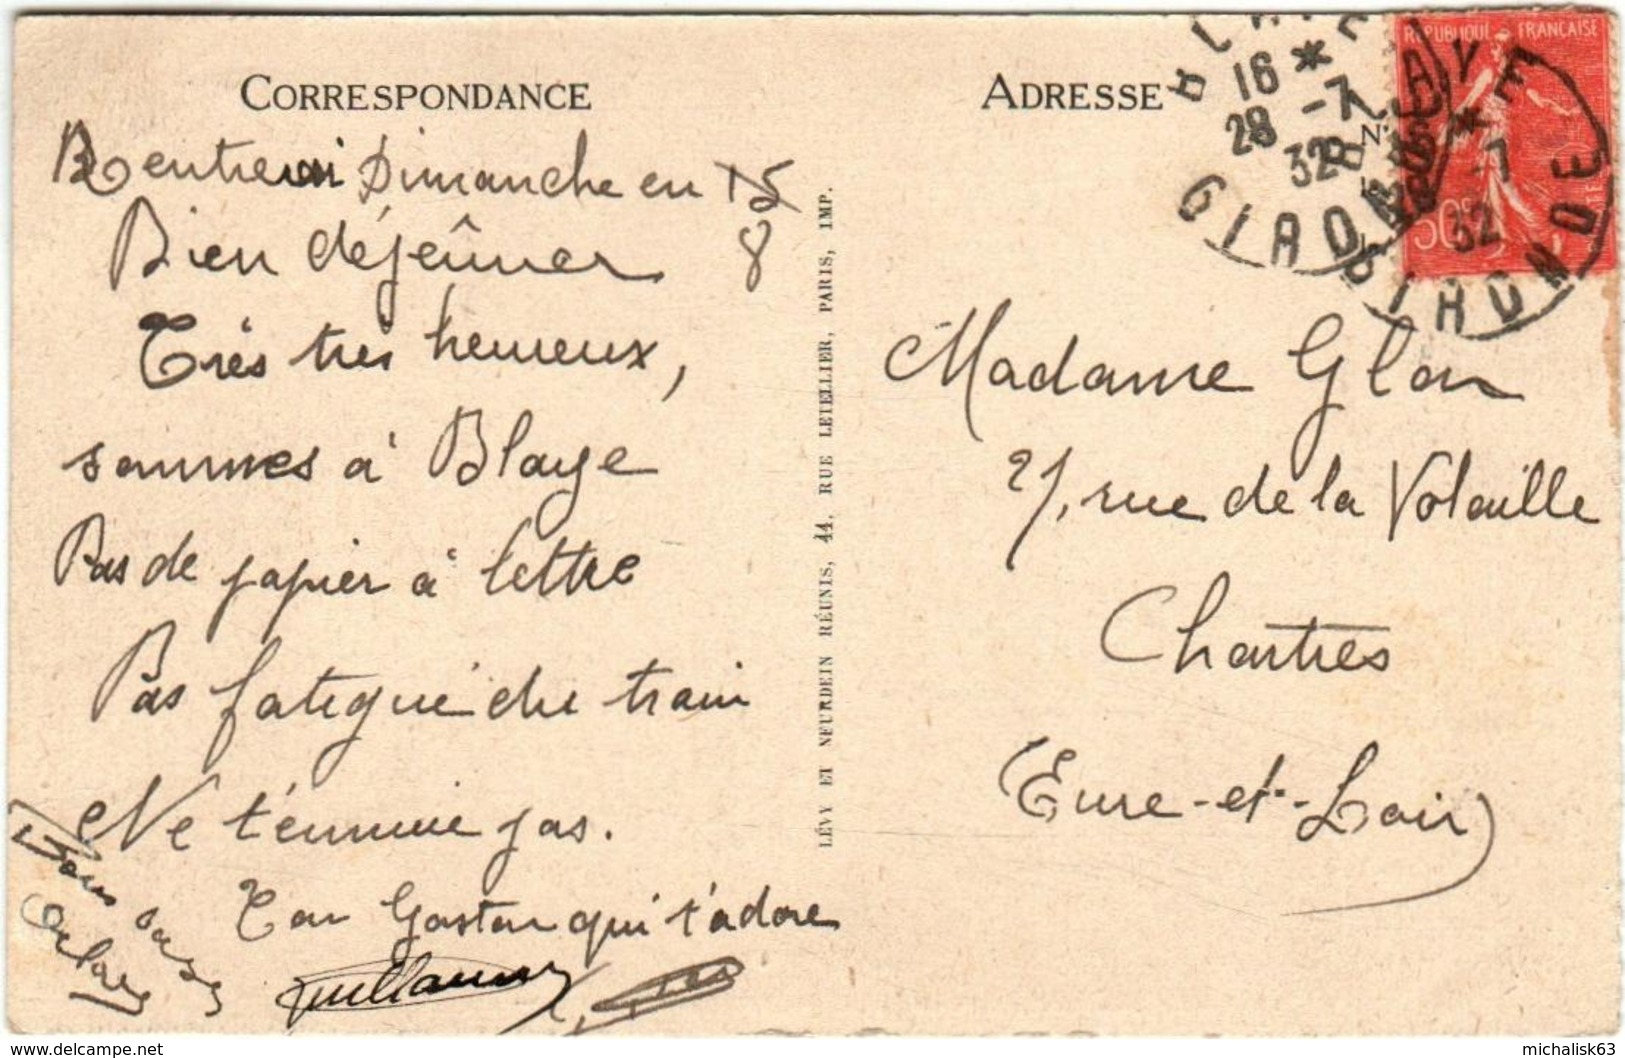 CORRESPONDANCE
Rentrerai Dimanche en 15
8
Bien déjeûner
Très très heureux,
sommes à Blaye
Pas de papier à lettre
Pas fatigué du train
Ne t'ennuie pas.
Ton Gaston qui t'adore
Bons
LÉVY ET NEURDEIN RÉUNIS, 44, RUE LETELLIER, PARIS, IMP.
ADRESSE
BLAYE
16 *
28 -7
32
GIRONDE
BLAYE
*
-7
32
GIRONDE
REPUBLIQUE FRANÇAISE
50c
Madame Glon
21, rue de la Volaille
Chartres
(Eure-et-Loir)
michalisk63
www.delcampe.net